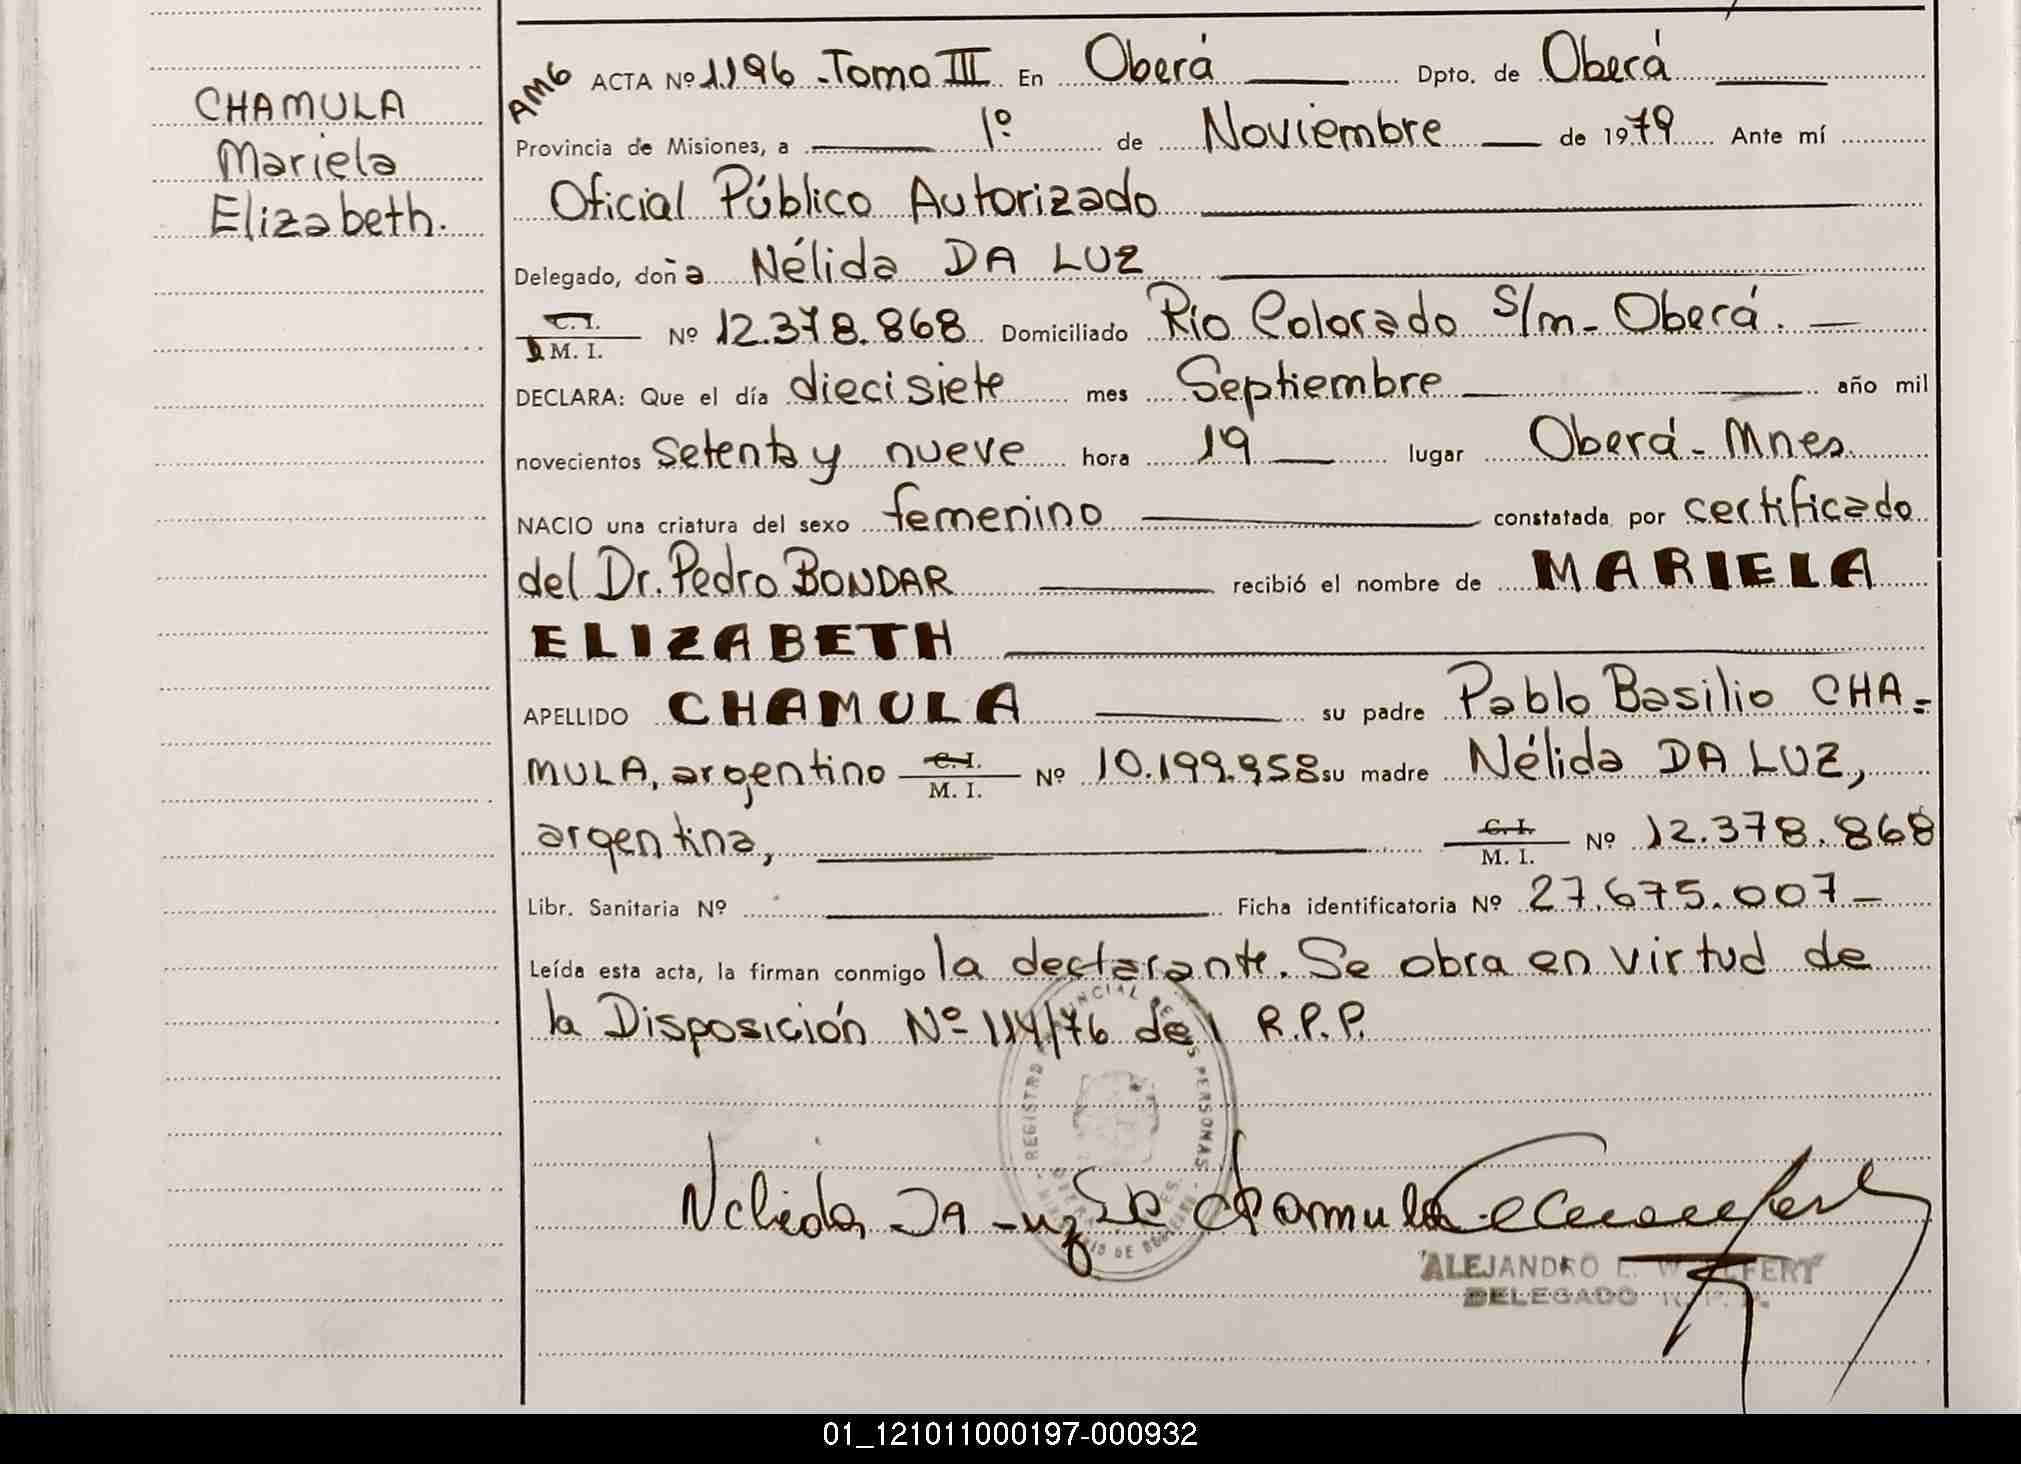 CHAMULA
Mariela
Elizabeth.
AMG ACTA Nº 1.196 - Tomo III En Oberá Dpto. de Oberá
Provincia de Misiones, a 1º de Noviembre de 1979 Ante mí
Oficial Público Autorizado
Delegado, doña Nélida DA LUZ
C. I.
D M. I. Nº 12.378.868 Domiciliado Río Colorado s/m - Oberá.
DECLARA: Que el día diecisiete mes Septiembre año mil
novecientos setenta y nueve hora 19 lugar Oberá - Mnes.
NACIO una criatura del sexo femenino constatada por certificado
del Dr. Pedro BONDAR recibió el nombre de MARIELA
ELIZABETH
APELLIDO CHAMULA su padre Pablo Basilio CHA=
MULA, argentino C. I. M. I. Nº 10.199.958 su madre Nélida DA LUZ,
argentina, C. I. M. I. Nº 12.378.868
Libr. Sanitaria Nº Ficha identificatoria Nº 27.675.007-
Leída esta acta, la firman conmigo la declarante. Se obra en virtud de
la Disposición Nº 114/76 del R.P.P.
REGISTRO PROVINCIAL DE LAS PERSONAS
Nelida Da Luz De Chamula
ALEJANDRO E.
DELEGADO
01_121011000197-000932